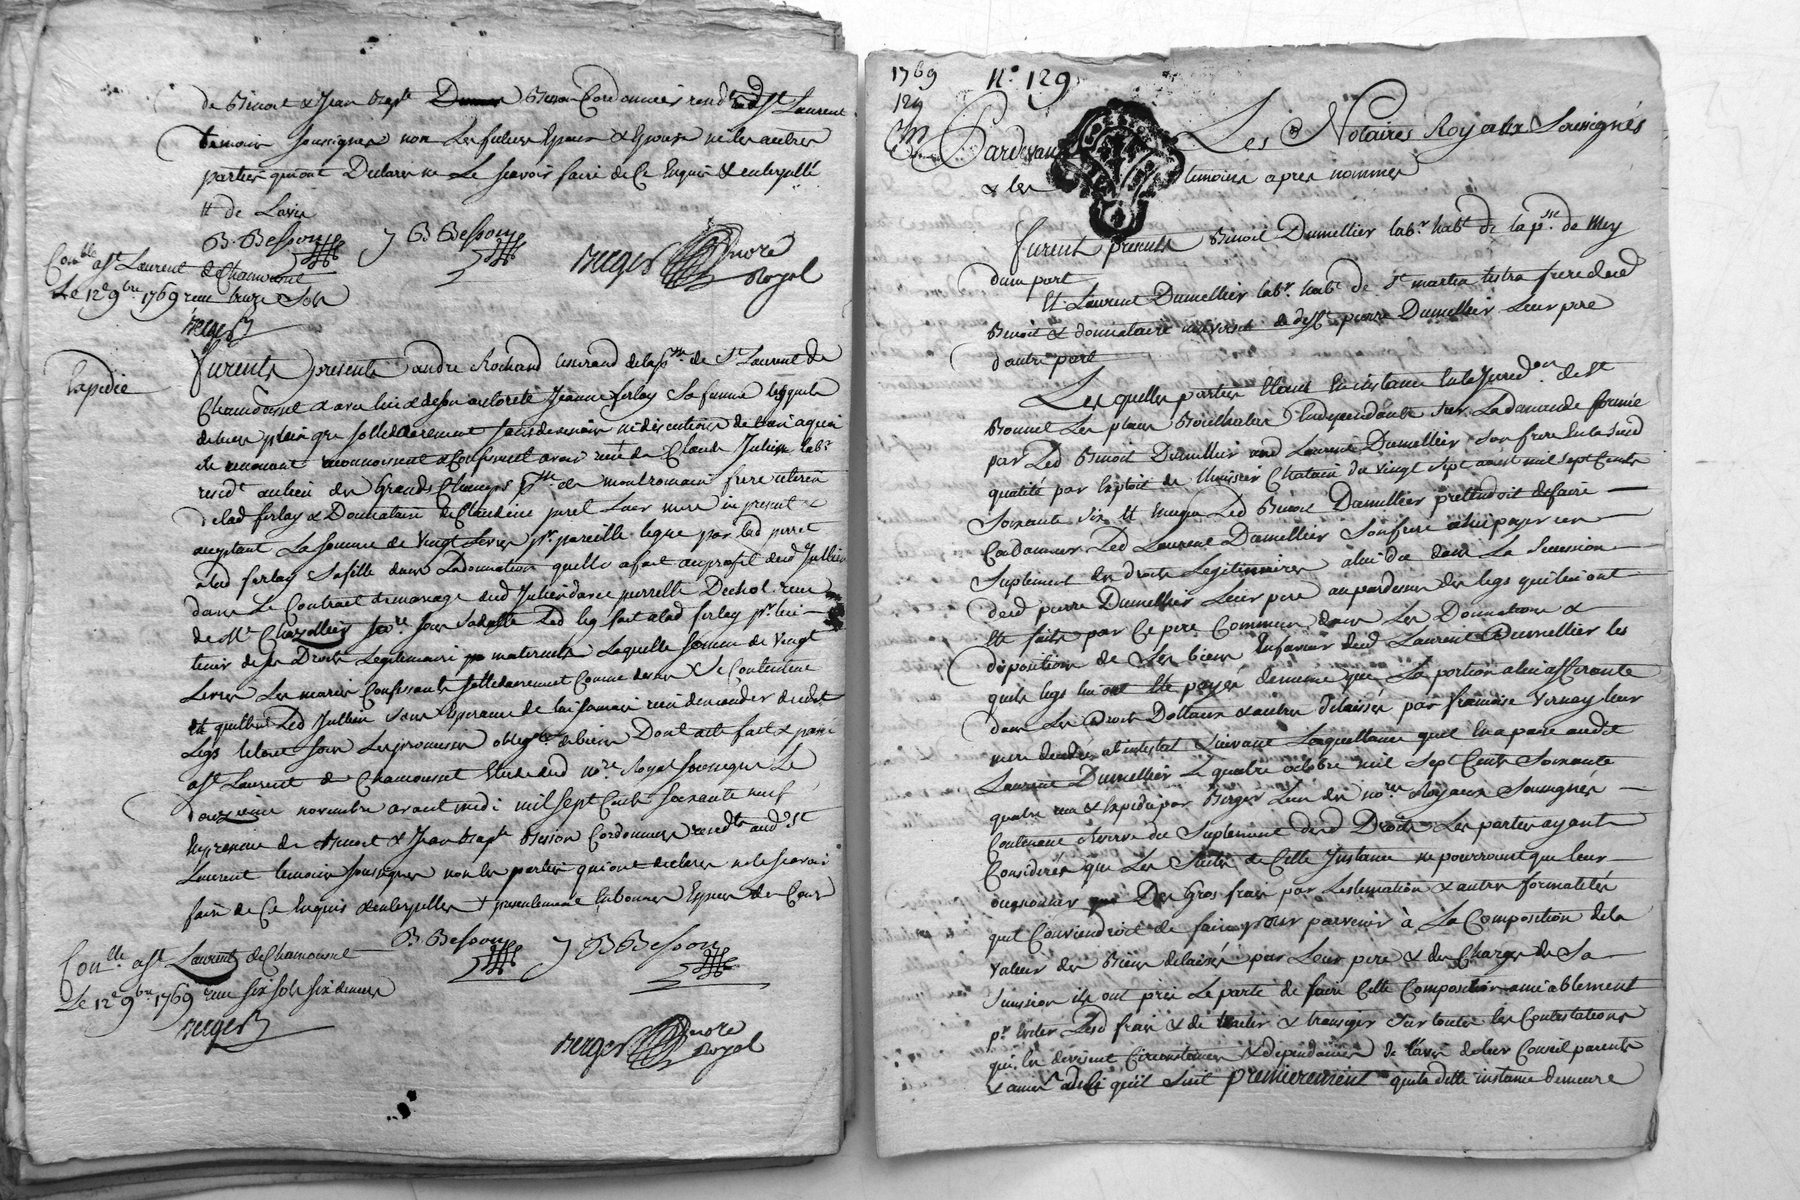 de Benoit & Jean Bapte Besson Cordonniers residts aud St Laurent
temoins soussignes non les futures Epoux & Epouse ni les autres
parties qui ont Declarés ne Le scavoir faire de Ce Enquis & interpellé
B. Besson J B Besson
Berger nore Royal
Conlle a St Laurent de Chamousset
Le 12e 9bre 1769 reçu treize Sols
Berger
Expedié
Furents presents andré Rochand de la psse de St Laurent de
Chamousset & avec lui & de son authorité Jeanne ferlay Sa femme lesquels
de leurs plein gre sollidairement sans division ni discution de l'un a quoi
ils renoncent reconnoissent & Confessent avoir reçu de Claude Jullien labr
residt au lieu des Grands Champs psse de montromain frere uterin
de lad ferlay & Donnataire de Claudine perret Leur mere ici present &
acceptant La somme de vingt Livres pr pareille leguée par lad perret
a lad ferlay Sa fille dans La donnation quelle a fait au profit dud Jullien
dans Le Contract de mariage dud Jullien avec pierrette Dechol reçu
de Me Chazollier nore sous Sa datte Led leg fait a lad ferlay pr lui
tenir de ses Droits Legitimaires maternels Laquelle somme de vingt
Livres Les mariés Confessants sollidairement Comme dessus & Se Contentent
et quittent Led Jullien sans Esperance de lui jamais rien demander dud
Legs le tout sous Les promesses obligons de biens Dont acte fait & passé
a St Laurent de Chamousset Etude dud nore Royal soussigné Le
douzieme novembre avant midi mil sept Cents soixante neuf
En presence de Benoit & Jean Bapte Besson Cordonniers residts aud St
Laurent temoins soussignes non les parties qui ont declarés ne le scavoir
faire de Ce Enquis & interpellés
B. Besson J B Besson
Conlle a St Laurent de Chamousset
Le 12e 9bre 1769 reçu six sols six deniers
Berger
Berger nore Royal
1769
129
N° 129
Pardevant Les Notaires Royaux Soussignés
& les temoins apres nommés
Furent presents Benoit Dumellier labr habt de la psse de Mey
d'une part
Et Laurent Dumellier labr habt de St martin frere dud
Benoit & donnataire universel de deft pierre Dumellier Leur pere
d'autre part
Les quelles parties Etant En instance En la Juredon de St
Bonnet Les places Sur La demande formée
par Led Benoit Dumellier aud Laurent Dumellier Son frere En la susd
qualité par Exploit de L'huissier Chatain du vingt sept aoust mil sept Cents
Soixante six Et Enquoy Led Benoit Dumellier prettendoit de faire
Condamner Led Laurent Dumellier Son frere a lui payer un
Suplement de droits Legitimaires a lui du dans La Succession
dud pierre Dumellier Leur pere au pardessus des legs qui lui ont
Eté faits par Ce pere Commun dans les Donnations &
dispositions de Ses biens En faveur dud Laurent Dumellier les
quels legs lui ont Eté payés de meme que La portion a lui afferante
dans Les Droits Dottaux & autres delaissés par francoise Vernay leur
mere decedée ab intestat Suivant La quittance quil En a passé aud
Laurent Dumellier Le quatre octobre mil Sept Cents Soixante
quatre reçu & Expedié par Berger L'un des nores Royaux Soussignés
Contenant Reserve du Suplement desd Droits Les parties ayants
Considerés que Les Suites de Cette Instance ne pourroient que leur
occasionner Des Gros frais par L'estimation & autres formalités
quil Conviendroit de faire pour parvenir à La Composition de la
valeur des Biens delaissés par Leur pere & des Charges de Sa
Sucession ils ont pris Le parti de faire Cette Composition amiablement
pr Eviter Lesd frais & de traiter & transiger Sur toutes les Contestations
qui les divisent Circonstances & dependances de l'avis de leur Conseil parents
& amis de Ce quil Suit premierement que la dette instance demeure